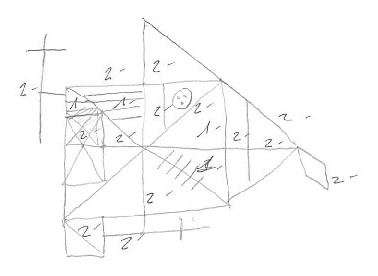 2- 2-
2-
1- 1- 2- 2-
2- 2- 1- 2- 2- 2-
1-
2-
2-
2- 2-